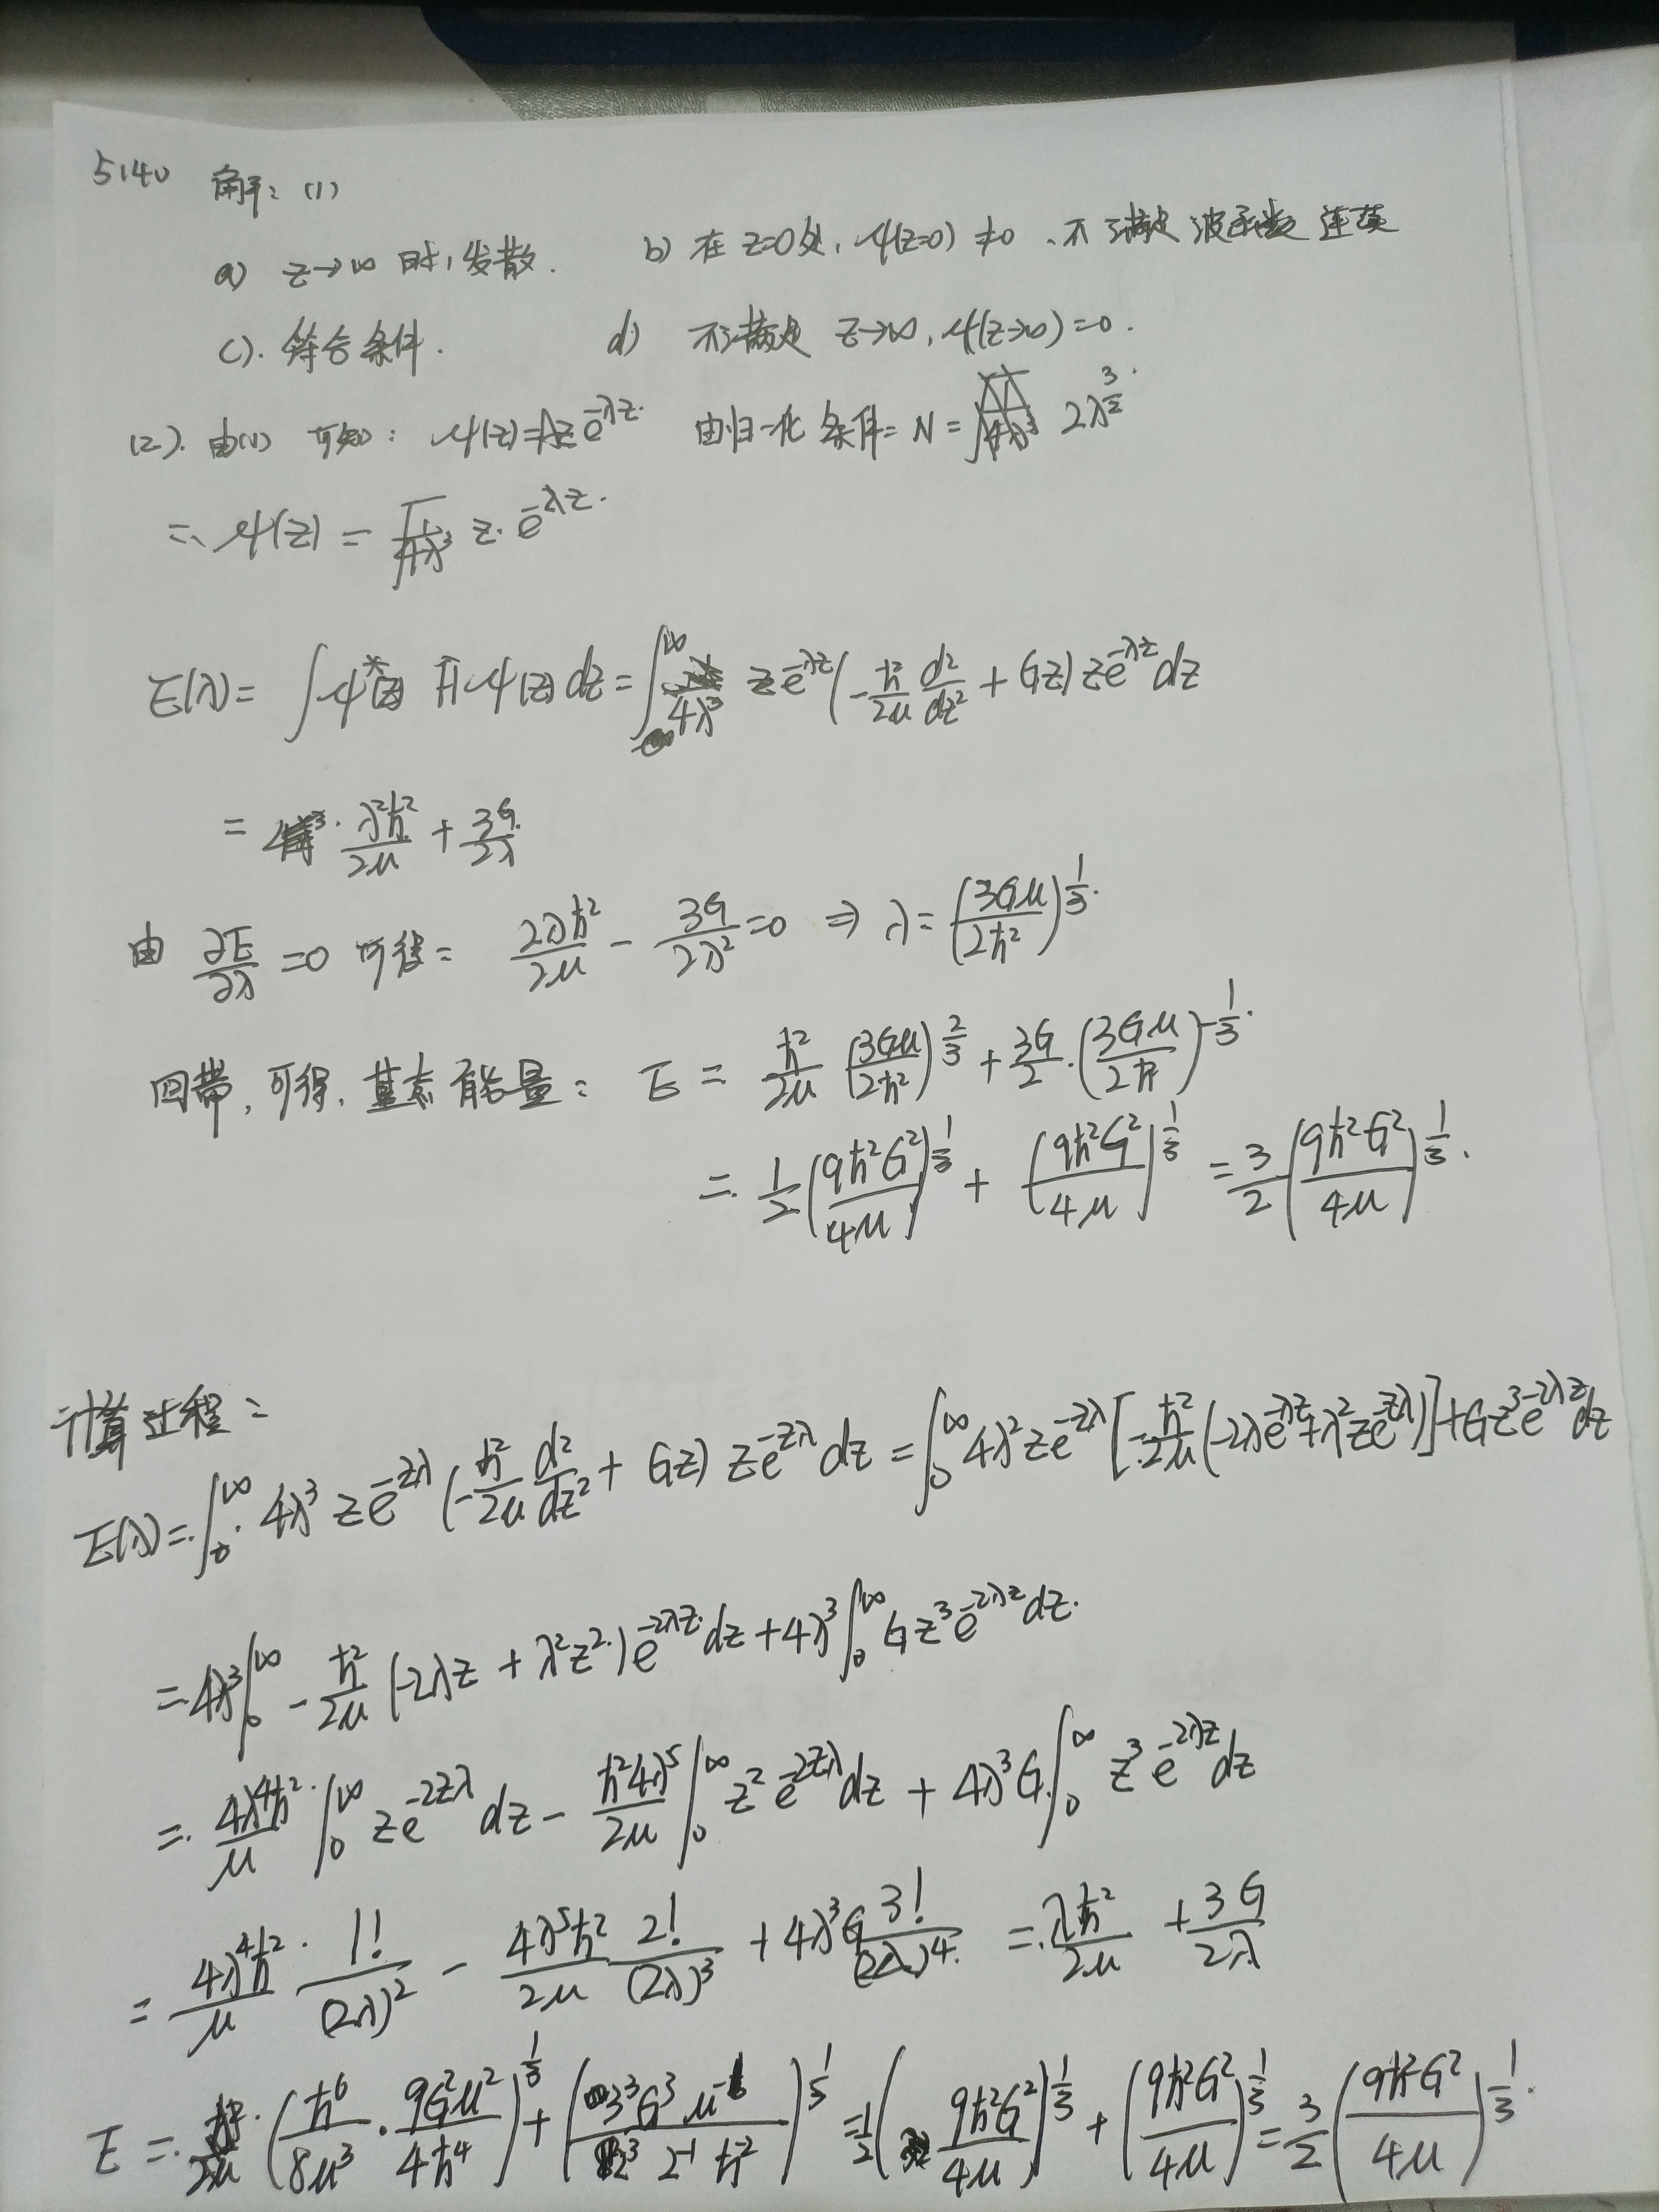 5140 解：(1)
a) z→∞ 时，发散. b) 在 z=0处，ψ(z=0) ≠0、不满足 波函数 连续
c). 符合条件. d) 不满足 z→∞, ψ(z→∞)=0.
(2). 由(1) 可知: ψ(z)=Aze^{-λz}. 由归一化条件= N = 2λ^{3/2}.
∴ ψ(z) = √(1/4λ³) z·e^{-λz}.
E(λ)= ∫ψ*(z) Ĥ ψ(z) dz = ∫_0^∞ 4λ³ ze^{-λz}(-ħ²/2μ d²/dz² + Gz) ze^{-λz} dz
= λ²ħ²/2μ + 3G/2λ
由 ∂E/∂λ =0 可得= 2λħ²/2μ - 3G/2λ² =0 ⇒ λ = (3Gμ/2ħ²)^{1/3}.
回带, 可得, 基态能量: E = ħ²/2μ (3Gμ/2ħ²)^{2/3} + 3G/2·(3Gμ/2ħ)^{-1/3}.
= 1/2 (9ħ²G²/4μ)^{1/3} + (9ħ²G²/4μ)^{1/3} = 3/2 (9ħ²G²/4μ)^{1/3}.
计算过程=
E(λ)= ∫_0^∞ 4λ³ ze^{-zλ} (-ħ²/2μ d²/dz² + Gz) ze^{-zλ} dz = ∫_0^∞ 4λ² ze^{-zλ} [-ħ²/2μ (-2λe^{-λz}+λ²ze^{-zλ})]+Gz³e^{-2λz}dz
= 4λ³∫_0^∞ -ħ²/2μ (-2λz + λ²z²)e^{-2λz} dz + 4λ³∫_0^∞ Gz³e^{-2λz}dz.
= 4λ⁴ħ²/μ ∫_0^∞ ze^{-2zλ} dz - ħ²4λ⁵/2μ ∫_0^∞ z²e^{-2zλ}dz + 4λ³G∫_0^∞ z³e^{-2λz}dz
= 4λ⁴ħ²/μ · 1!/(2λ)² - 4λ⁵ħ²/2μ 2!/(2λ)³ + 4λ³G 3!/(2λ)⁴ = λħ²/2μ + 3G/2λ
E = (ħ⁶/8μ³ · 9G²μ²/4ħ⁴)^{1/3} + (3³G³μ⁻¹/2³ 2⁻¹ ħ⁻²)^{1/3} = 1/2 (9ħ²G²/4μ)^{1/3} + (9ħ²G²/4μ)^{1/3} = 3/2 (9ħ²G²/4μ)^{1/3}.